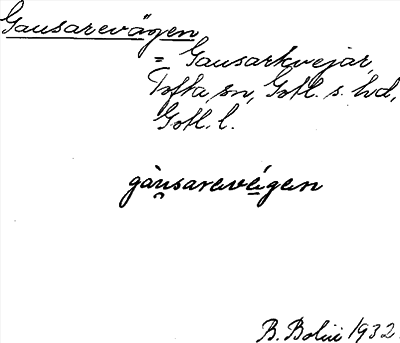 Gausarevägen
= Gausarkvejar,
Tofta sn, Gotl. s. hd,
Gotl. l.
gàu̯sarevégen
B. Bolin 1932.